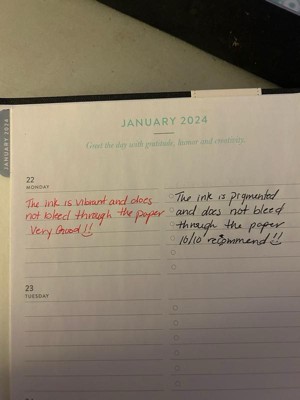 JANUARY 2024
JANUARY 2024
Greet the day with gratitude, humor and creativity.
22
MONDAY
The ink is vibrant and does
not bleed through the paper
Very Good!!
The ink is pigmented
and does not bleed
through the paper
10/10 recommend!!
23
TUESDAY